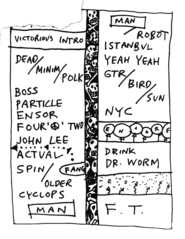 VICTORIOUS INTRO
DEAD/
MINIM/
POLK
BOSS
PARTICLE
ENSOR
FOUR'O' TWO
JOHN LEE
ACTUAL
SPIN/ FANG
OLDER
CYCLOPS
MAN
MAN/
ROBOT
ISTANBUL
YEAH YEAH
GTR/
BIRD/
SUN
NYC
ENCORE
DRINK
DR. WORM
F. T.